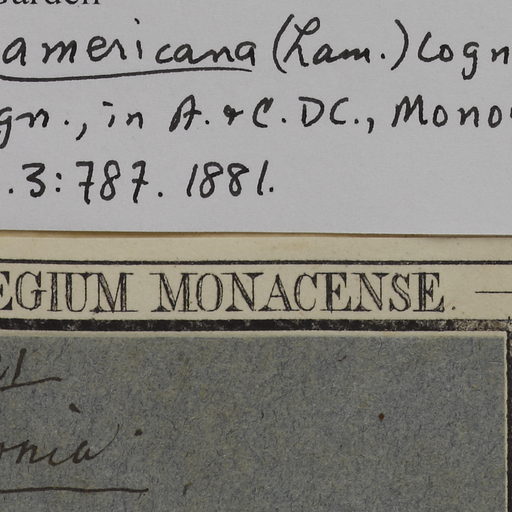 Garden
americana (Lam.) Cogn
gn., in A. & C. DC., Mono
. 3: 787. 1881.
EGIUM MONACENSE.
onia